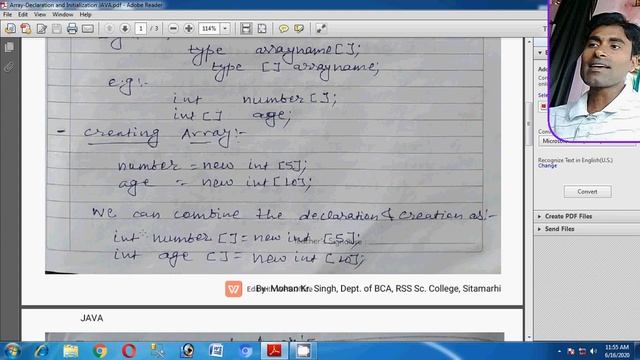 Array-Declaration and Initialization JAVA.pdf - Adobe Reader
File Edit View Window Help
1 / 3
114%
type arrayname[];
type [] arrayname;
e.g:-
int number[];
int[] age;
- Creating Array:-
number = new int [5];
age = new int [10];
We can combine the declaration & creation as:-
int number [] = new int [5];
int age [] = new int [10];
By Mohan Kr. Singh, Dept. of BCA, RSS Sc. College, Sitamarhi
JAVA
Convert
Recognize Text in English(U.S.)
Change
Create PDF Files
Send Files
11:55 AM
6/16/2020